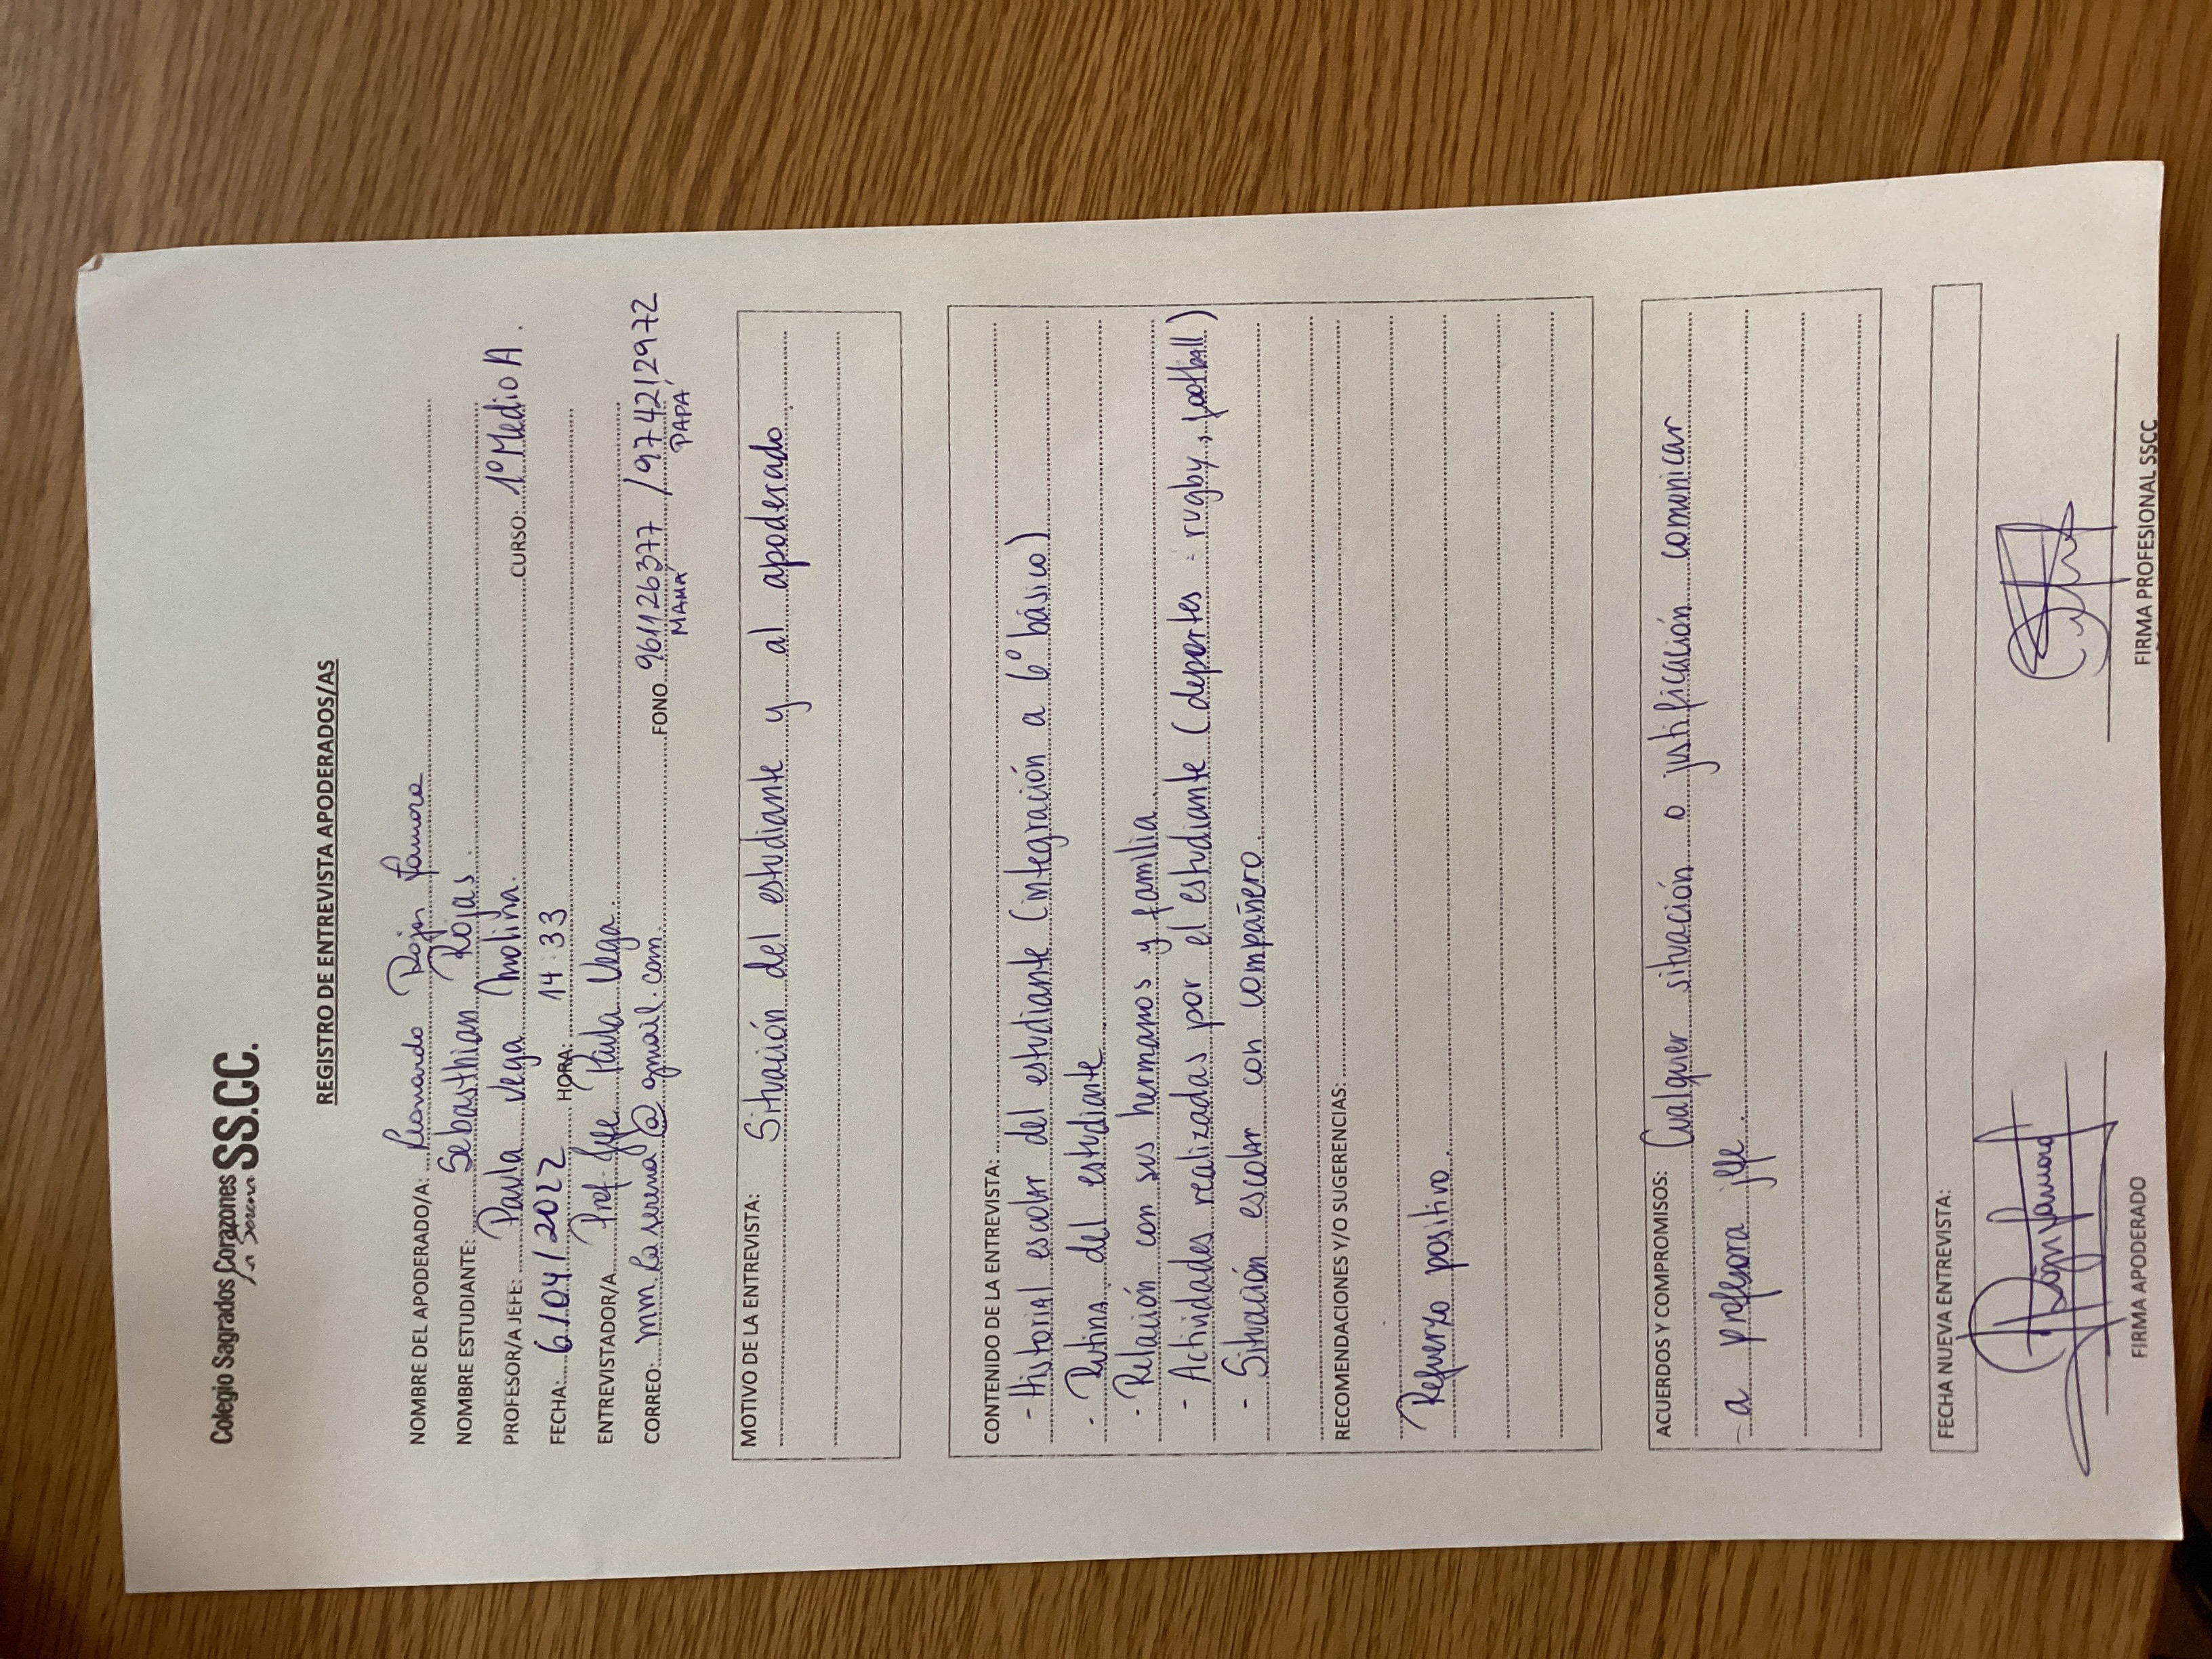 Colegio Sagrados Corazones SS.CC.
La Serena
REGISTRO DE ENTREVISTA APODERADOS/AS
NOMBRE DEL APODERADO/A: Leonardo Rojas Zamora
NOMBRE ESTUDIANTE: Sebasthian Rojas.
PROFESOR/A JEFE: Paula Vega Molina. CURSO: 1º Medio A.
FECHA: 6/04/2022 HORA: 14:33
ENTREVISTADOR/A Prof. Jefe Paula Vega.
CORREO: mm.laserena@gmail.com. FONO 961126377 / 974212972
MAMÁ PAPÁ
MOTIVO DE LA ENTREVISTA:
Situación del estudiante y al apoderado
CONTENIDO DE LA ENTREVISTA:
- Historial escolar del estudiante (integración a 6º básico)
- Rutina del estudiante
- Relación con sus hermanos y familia
- Actividades realizadas por el estudiante (deportes = rugby, football)
- Situación escolar con compañero.
RECOMENDACIONES Y/O SUGERENCIAS:
Refuerzo positivo.
ACUERDOS Y COMPROMISOS: Cualquier situación o justificación comunicar
a profesora jefe.
FECHA NUEVA ENTREVISTA:
FIRMA APODERADO FIRMA PROFESIONAL SSCC